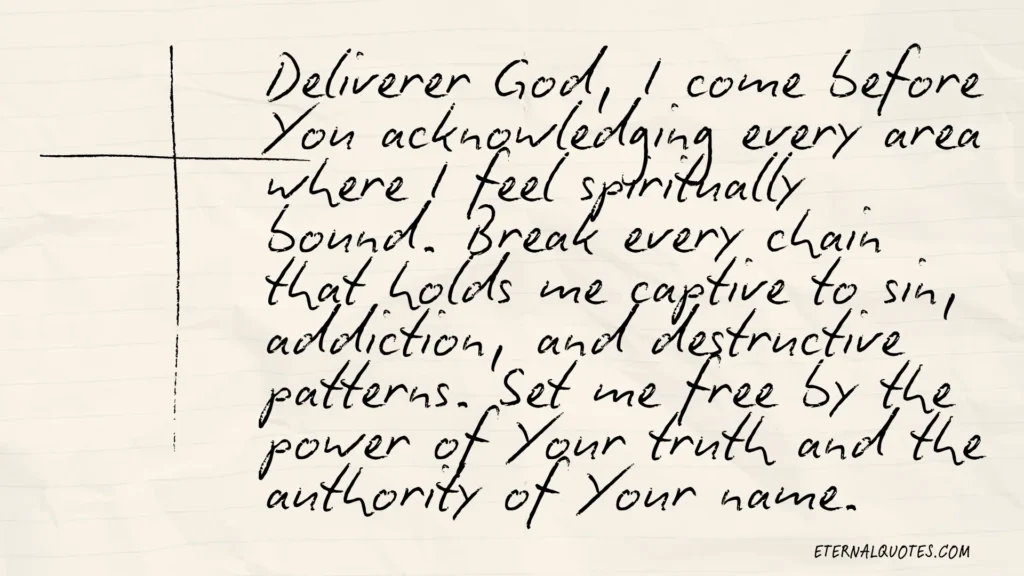 Deliverer God, I come before
You acknowledging every area
where I feel spiritually
bound. Break every chain
that holds me captive to sin,
addiction, and destructive
patterns. Set me free by the
power of Your truth and the
authority of Your name.
ETERNALQUOTES.COM